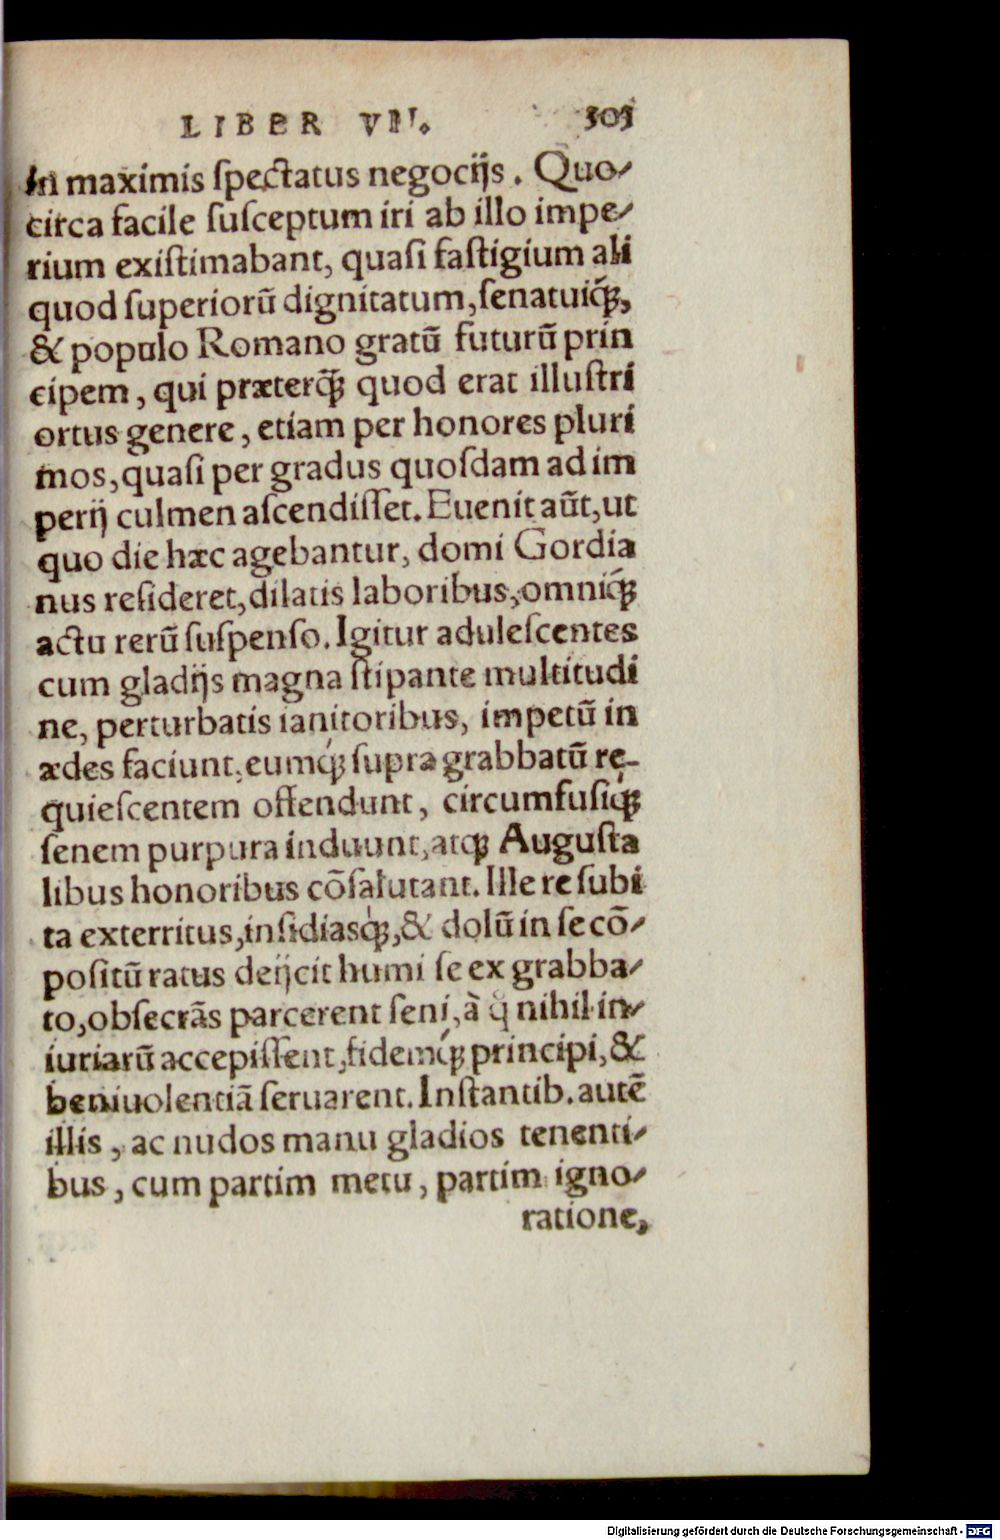 LIBER VII. 303
in maximis ſpectatus negocijs. Quo-
circa facile ſuſceptum iri ab illo impe-
rium exiſtimabant, quaſi faſtigium ali
quod ſuperiorū dignitatum, ſenatuiq́₃,
& populo Romano gratū futurū prin
cipem, qui præterq̄₃ quod erat illuſtri
ortus genere, etiam per honores pluri
mos, quaſi per gradus quoſdam ad im
perij culmen aſcendiſſet. Euenit aūt, ut
quo die hæc agebantur, domi Gordia
nus reſideret, dilatis laboribus, omniq́₃
actu rerū ſuſpenſo. Igitur aduleſcentes
cum gladijs magna ſtipante multitudi
ne, perturbatis ianitoribus, impetū in
ædes faciunt, eumq́₃ ſupra grabbatū re-
quieſcentem offendunt, circumfuſiq́₃
ſenem purpura induunt, atq₃ Auguſta
libus honoribus cōſalutant. Ille re ſubi
ta exterritus, inſidiasq́₃, & dolū in ſe cō-
poſitū ratus deijcit humi ſe ex grabba-
to, obſecrās parcerent ſeni, à q̊ nihil in-
iuriarū accepiſſent, fidemq́₃ principi, &
beniuolentiā ſeruarent. Inſtantib. autē
illis, ac nudos manu gladios tenenti-
bus, cum partim metu, partim igno-
ratione,
Digitalisierung gefördert durch die Deutsche Forschungsgemeinschaft - DFG